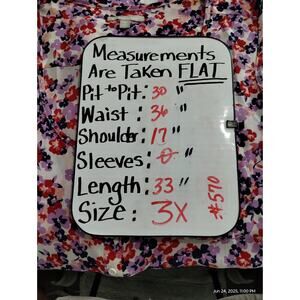 Measurements
Are Taken FLAT
Pit to Pit: 30 "
Waist: 36 "
Shoulder: 17 "
Sleeves: 0 "
Length: 33 "
Size: 3X
#570
Jun 24, 2025, 11:00 PM